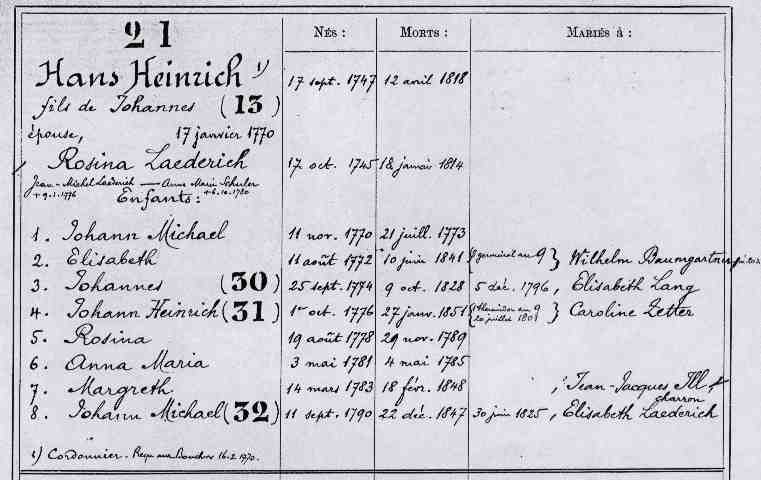 21
NÉS : MORTS : MARIÉS à :
Hans Heinrich 1) 17 sept. 1747 12 avril 1818
fils de Johannes (13)
épouse, 17 janvier 1770
Rosina Laederich 17 oct. 1745 18 janvier 1814
Jean-Michel Laederich — Anne Marie Schuler
+9.1.1776 +6.10.1780
Enfants :
1. Johann Michael 11 nov. 1770 21 juill. 1773
2. Elisabeth 11 août 1772 10 juin 1841 germinal an 9 } Wilhelm Baumgartner
3. Johannes (30) 25 sept. 1774 9 oct. 1828 5 déc. 1796, Elisabeth Lang
4. Johann Heinrich (31) 1er oct. 1776 27 janv. 1851 { 1 thermidor an 9 20 juillet 1801 } Caroline Zetter
5. Rosina 19 août 1778 29 nov. 1789
6. Anna Maria 3 mai 1781 4 mai 1785
7. Margreth 14 mars 1783 18 févr. 1848 , Jean-Jacques Ill
charron
8. Johann Michael (32) 11 sept. 1790 22 déc. 1847 30 juin 1825, Elisabeth Laederich
1) Cordonnier. Reçu aux 16.2.1770.